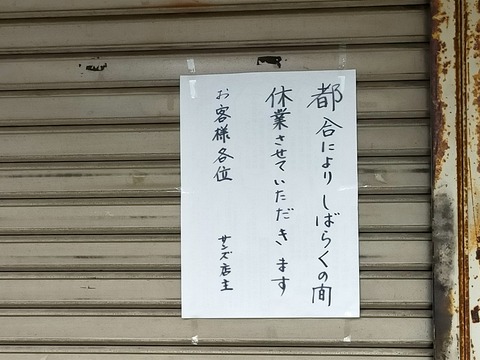 都合によりしばらくの間
休業させていただきます
お客様各位
サンズ店主